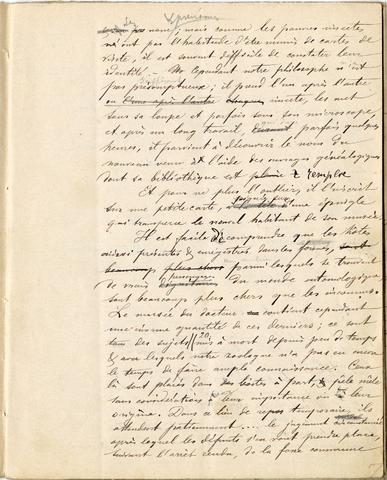 des prénoms
nom; mais comme les pauvres insectes
n'ont pas l'habitude d'être munis de cartes de
visite, il est souvent difficile de constater leur
identité. — cependant notre philosophe n'est
pas présomptueux; il prend l'un après l'autre
ou l'une après l'autre chaque insecte, les met
sous sa loupe et parfois sous son microscope,
et après un long travail, parfois quelques
heures, il parvient à découvrir le nom du
nouveau venu à l'aide des ouvrages généalogiques
dont sa bibliothèque est pleine remplie
Et pour ne plus l'oublier, il l'inscrit
sur une petite carte, d'une épingle
qui transperce le nouvel habitant de son musée.
Il est facile de comprendre que les hôtes
ainsi présentés & enregistrés dans les formes,
beaucoup plus chers parmi lesquels se trouvent
de vrais personnages du monde entomologique
sont beaucoup plus chers que les inconnus.
Le musée du docteur contient cependant
une énorme quantité de ces derniers; ce sont
tous des sujets mis à mort depuis peu de temps
& avec lesquels notre zoologue n'a pas eu encore
le temps de faire ample connaissance. Ceux
là sont placés dans des boîtes à part, pêle mêle
sans considération à leur importance ou à leur
origine. Dans ce lieu de repos temporaire, ils
attendent patiemment.... le jugement
après lequel les défunts s'en vont prendre place,
suivant l'arrêt rendu, de la fosse commune